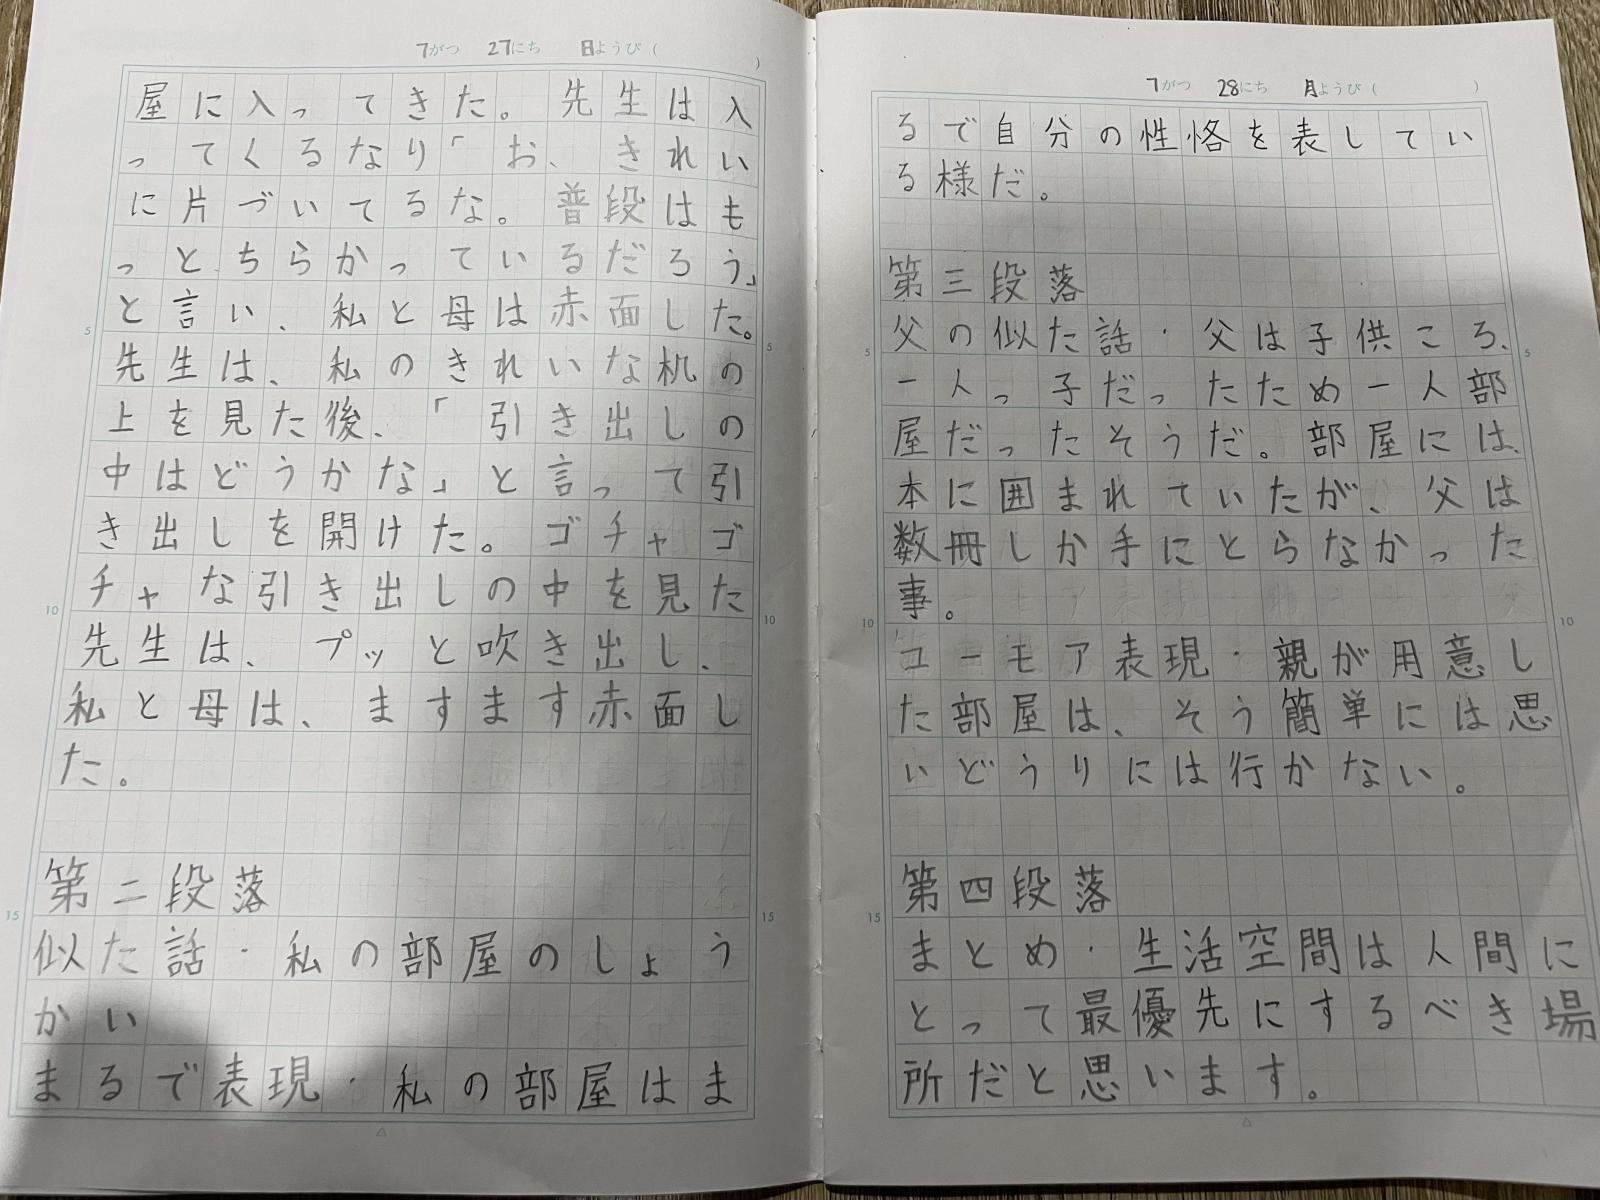 7がつ 27にち 日ようび( )
屋に入ってきた。先生は入
ってくるなり「お、きれい
に片づいてるな。普段はも
っとちらかっているだろう」
と言い、私と母は赤面した。
先生は、私のきれいな机の
上を見た後、「引き出しの
中はどうかな」と言って引
き出しを開けた。ゴチャゴ
チャな引き出しの中を見た
先生は、プッと吹き出し、
私と母は、ますます赤面し
た。
第二段落
似た話・私の部屋のしょう
かい
まるで表現・私の部屋はま
5
10
15
5
10
15
7がつ 28にち 月ようび( )
るで自分の性格を表してい
る様だ。
第三段落
父の似た話・父は子供ころ、
一人っ子だったため一人部
屋だったそうだ。部屋には、
本に囲まれていたが、父は
数冊しか手にとらなかった
事。
ユーモア表現・親が用意し
た部屋は、そう簡単には思
いどうりには行かない。
第四段落
まとめ・生活空間は人間に
とって最優先にするべき場
所だと思います。
5
10
15
5
10